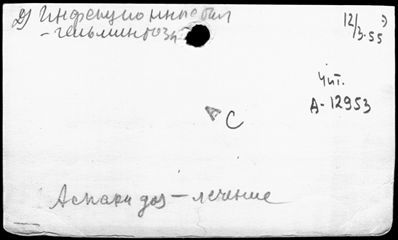 2) Инфекционные бол
- гельминтозы
12/3.55
Чит.
А-12953
А С
Аскаридоз - лечение